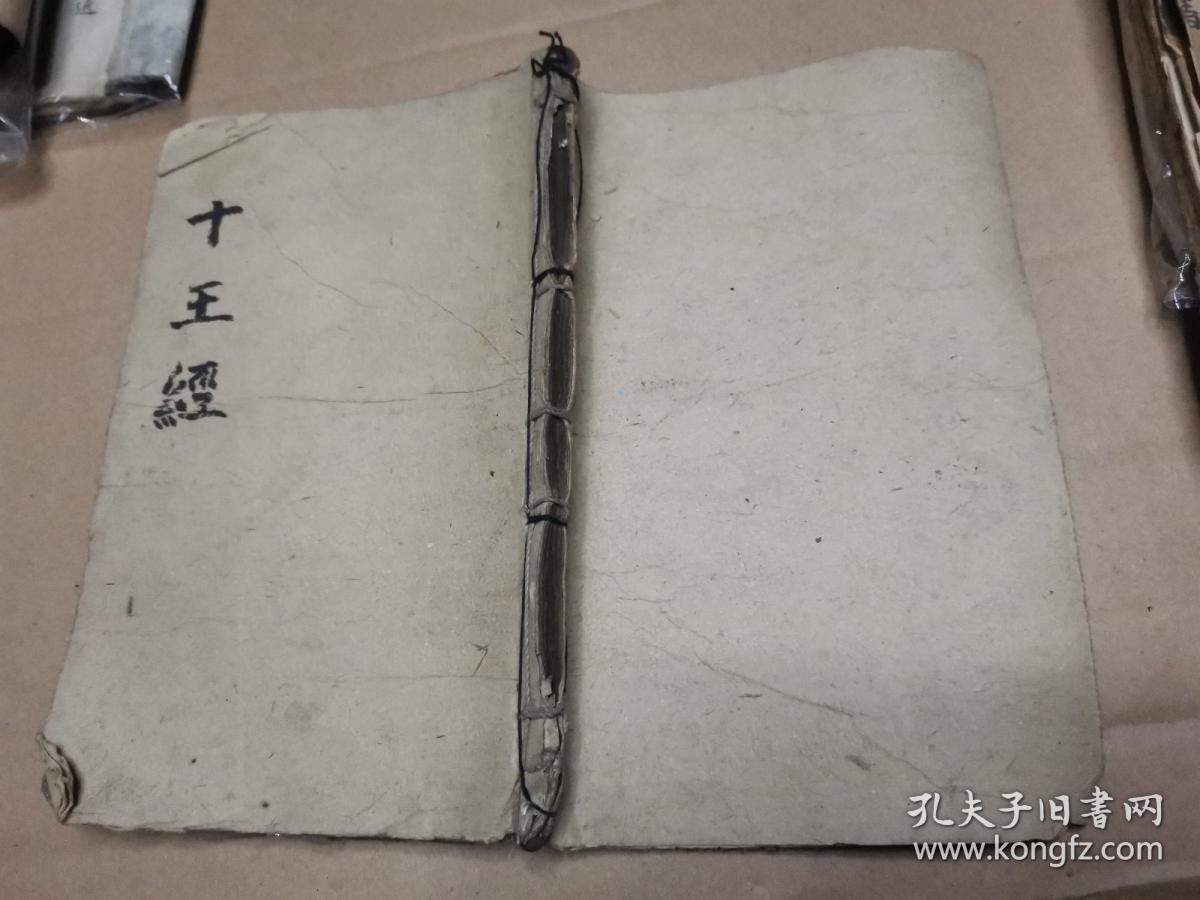 十王經
孔夫子旧書网
www.kongfz.com